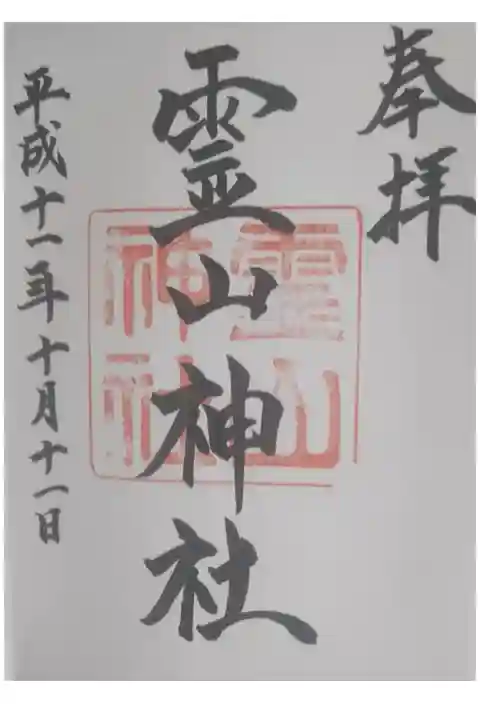 奉拝
霊山神社
霊山
神社
平成十一年十月十一日